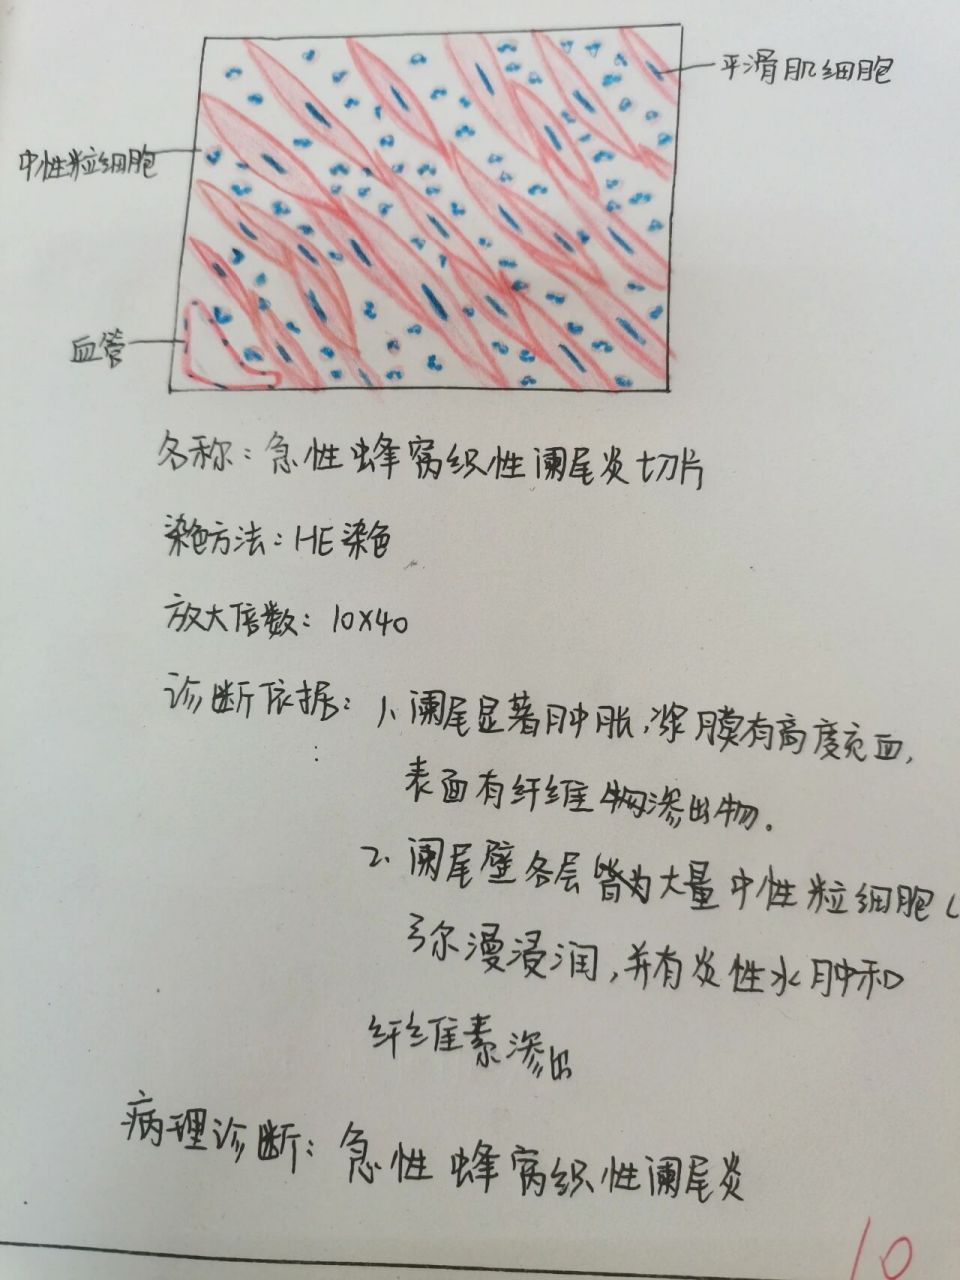 平滑肌细胞
中性粒细胞
血管
名称：急性蜂窝织性阑尾炎切片
染色方法：HE染色
放大倍数：10×40
诊断依据：1、阑尾显著肿胀，浆膜有高度充血，
表面有纤维物渗出物.
2、阑尾壁各层皆为大量中性粒细胞
弥漫浸润，并有炎性水肿和
纤维素渗出
病理诊断：急性蜂窝织性阑尾炎
10